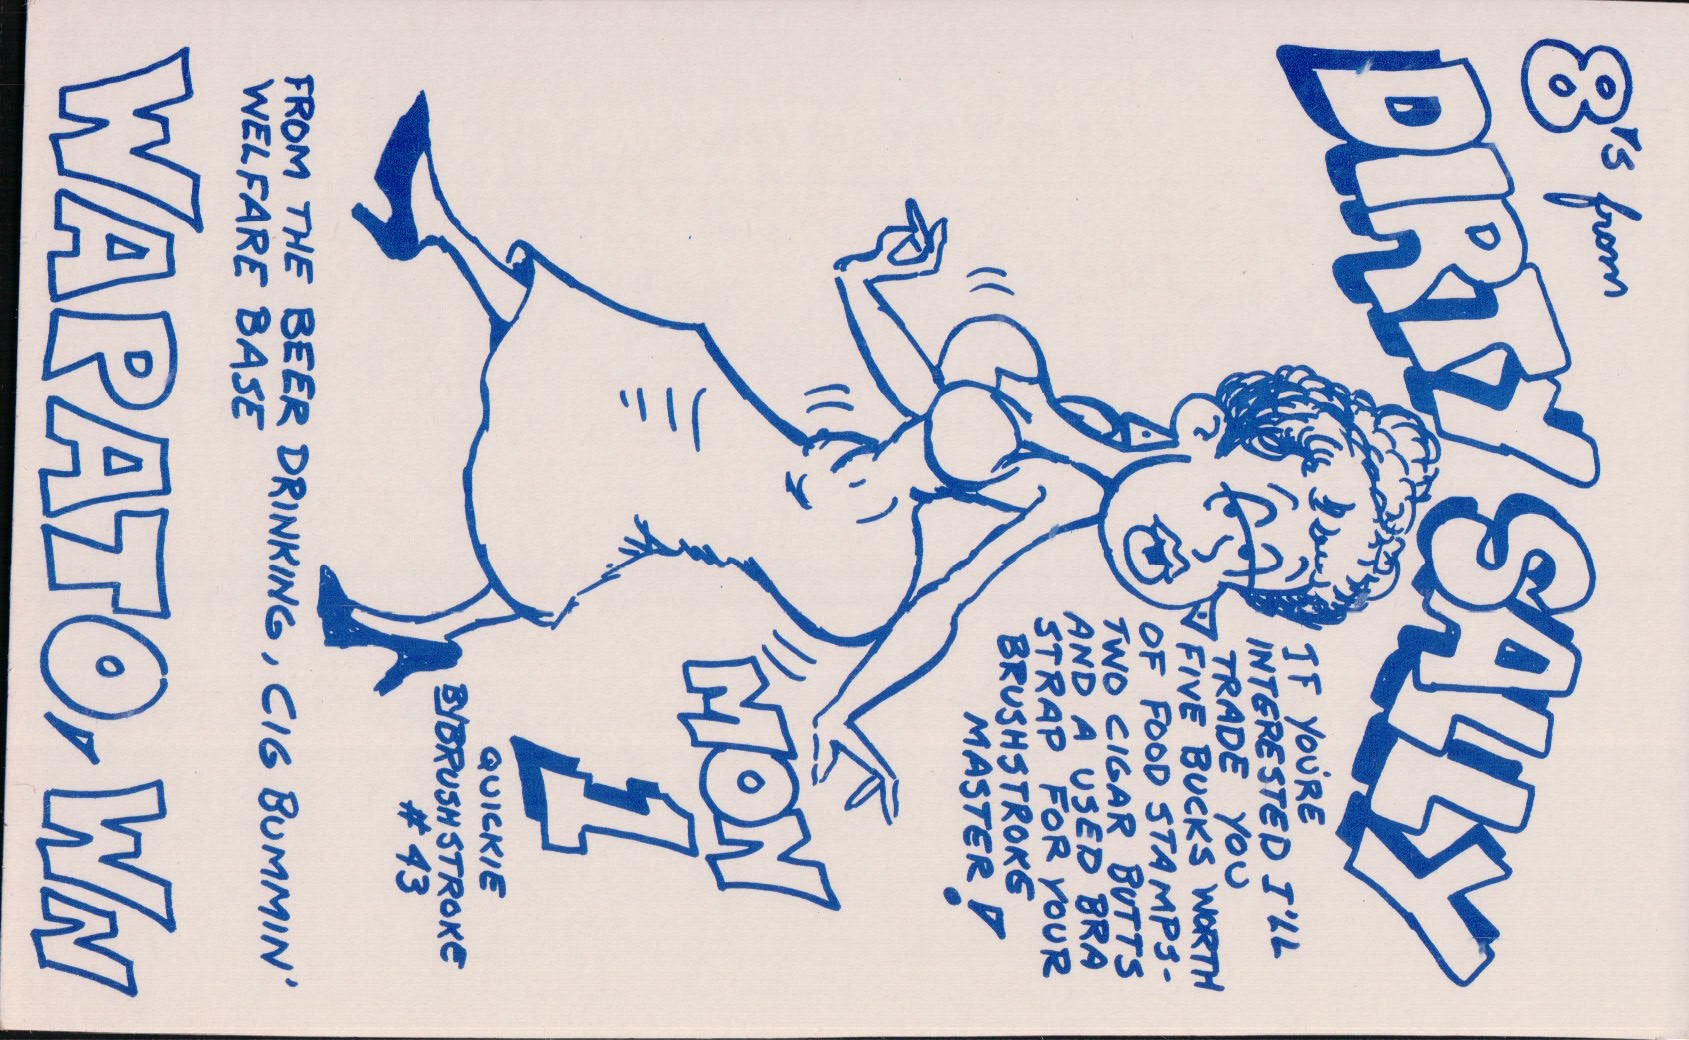 8's from
DIRTY SALLY
IF YOU'RE
INTERESTED I'LL
TRADE YOU
FIVE BUCKS WORTH
OF FOOD STAMPS-
TWO CIGAR BUTTS
AND A USED BRA
STRAP FOR YOUR
BRUSHSTROKE
MASTER!
MON
1
QUICKIE
BY BRUSHSTROKE
#43
FROM THE BEER DRINKING, CIG BUMMIN'
WELFARE BASE
WAPATO, WN